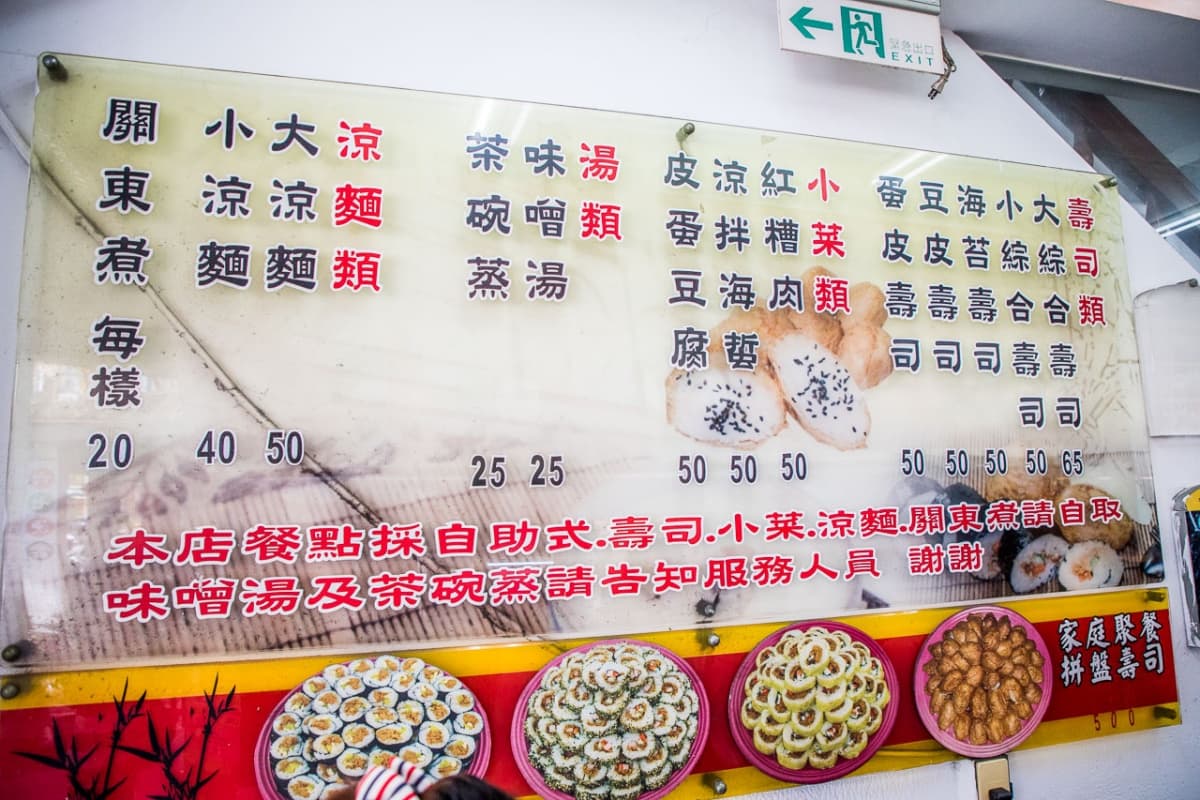 緊急出口
EXIT
壽司類
大綜合壽司 65
小綜合壽司 50
海苔壽司 50
豆皮壽司 50
蛋皮壽司 50
小菜類
紅糟肉 50
涼拌海哲 50
皮蛋豆腐 50
湯類
味噌湯 25
茶碗蒸 25
涼麵類
大涼麵 50
小涼麵 40
關東煮每樣 20
本店餐點採自助式.壽司.小菜.涼麵.關東煮請自取
味噌湯及茶碗蒸請告知服務人員 謝謝
家庭聚餐
拼盤壽司
500